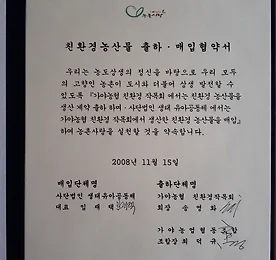 친환경농산물 출하 · 매입협약서
우리는 농도상생의 정신을 바탕으로 우리 모두
의 고향인 농촌이 도시와 더불어 상생 발전할 수
있도록 『가야농협 친환경 작목회 에서는 친환경 농산물을
생산 계약 출하 하며 · 사단법인 생태 유아공동체 에서는
가야농협 친환경 작목회에서 생산한 친환경 농산물을 매입』
하여 농촌사랑을 실천할 것을 약속합니다.
2008년 11월 15일
매입단체명
사단법인 생태유아공동체
대표 임재택
출하단체명
가야농협 친환경작목회
회장 송영화
가야농업협동조합
조합장 최덕규